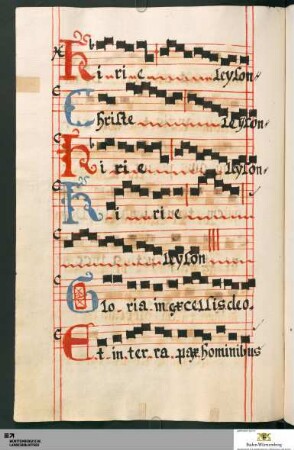 Ki rie leyson
Christe leyson
Ki ri e leyson
Ki ri e
leyson
Glo ria in excelsis deo
Et in ter ra pax hominibus
WÜRTTEMBERGISCHE
LANDESBIBLIOTHEK
Baden-Württemberg